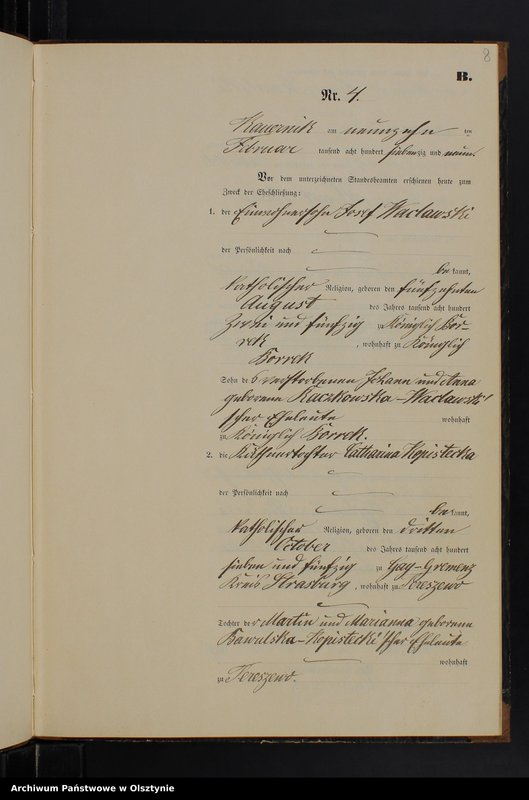 8
B.
Nr. 4.
Kauernik am neunzehn ten
Februar tausend acht hundert siebenzig und neun
Vor dem unterzeichneten Standesbeamten erschienen heute zum
Zweck der Eheschließung:
1. der Einwohnersohn Josef Waclawski
der Persönlichkeit nach
be kannt,
katholischer Religion, geboren den fünfzehnten
August des Jahres tausend acht hundert
zwei und fünfzig zu Königlich Bor-
rek, wohnhaft zu Königlich
Borrek
Sohn des verstorbenen Johann und Anna
geborene Kaczkowska-Waclawski'
schen Eheleute wohnhaft
zu Königlich Borrek.
2. die Käthnertochter Catharina Kopistecka
der Persönlichkeit nach
be kannt,
katholischer Religion, geboren den dritten
October des Jahres tausend acht hundert
sieben und fünfzig zu Gay-Gremenz
Kreis Strasburg, wohnhaft zu Tereszewo
Tochter der Martin und Marianna geborene
Bawulska-Kopistecki'schen Eheleute
wohnhaft
zu Tereszewo.
Archiwum Państwowe w Olsztynie